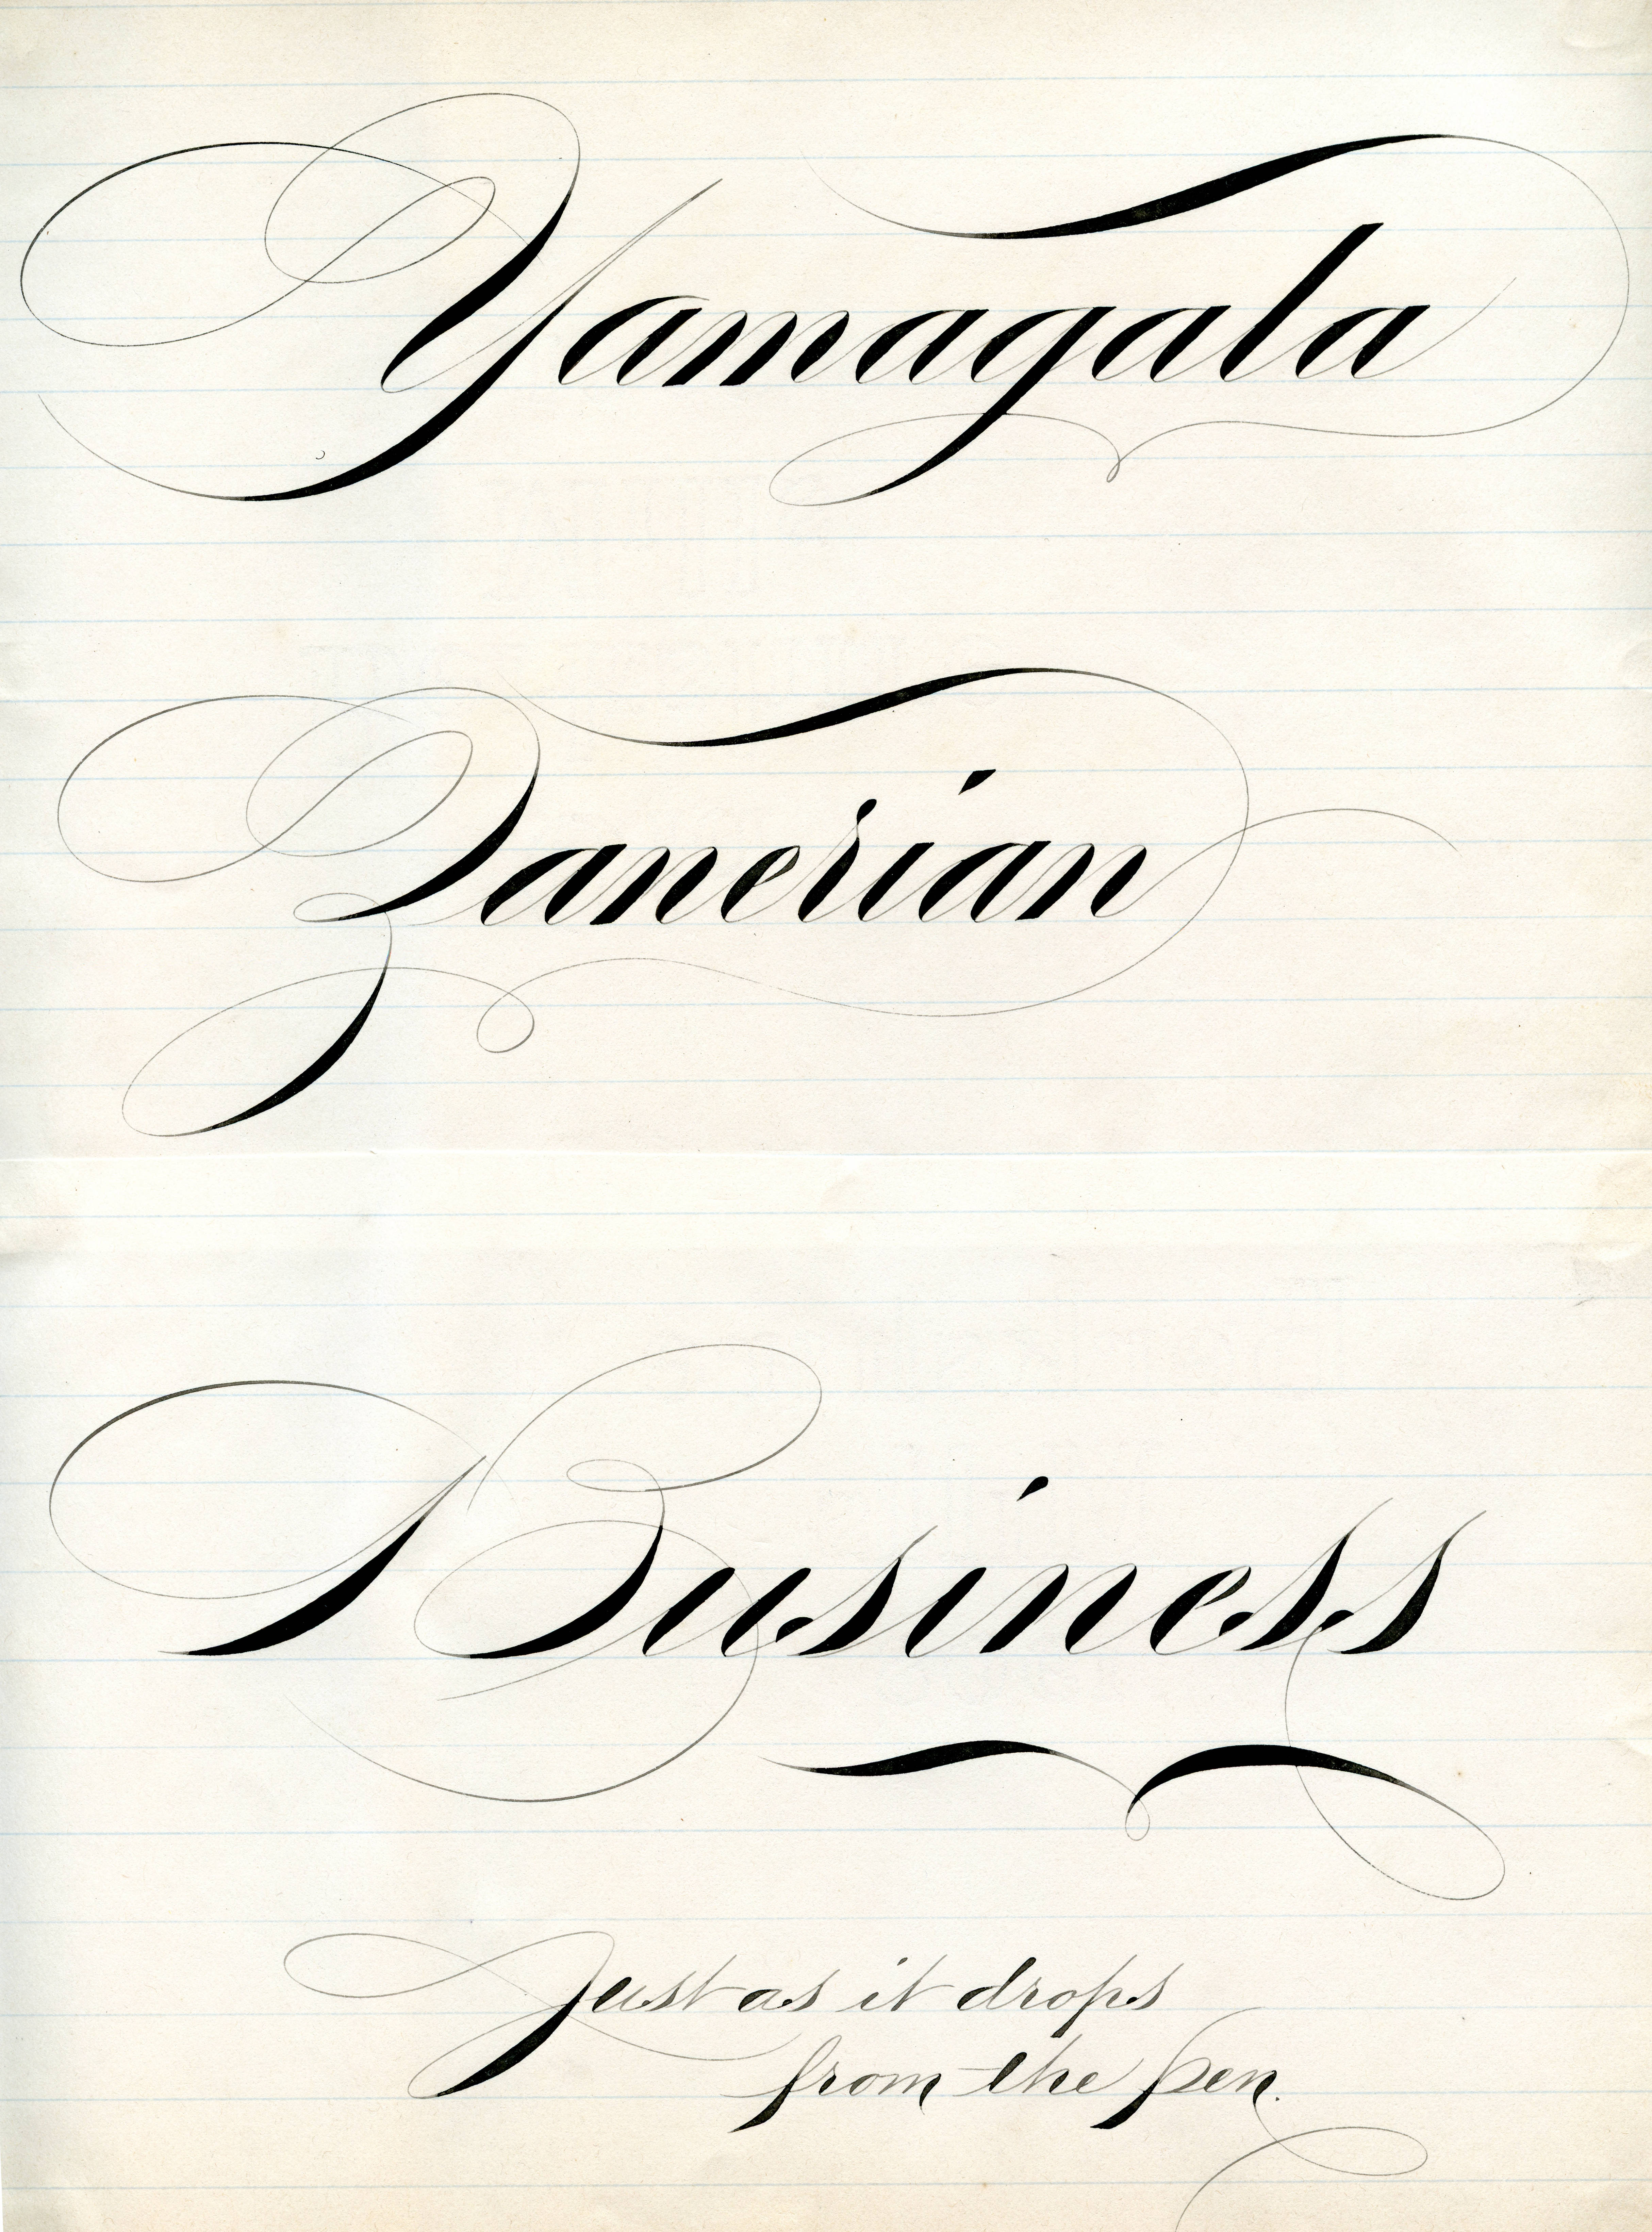 Yamagala
Zanerian
Business
Just as it drops
from the pen.